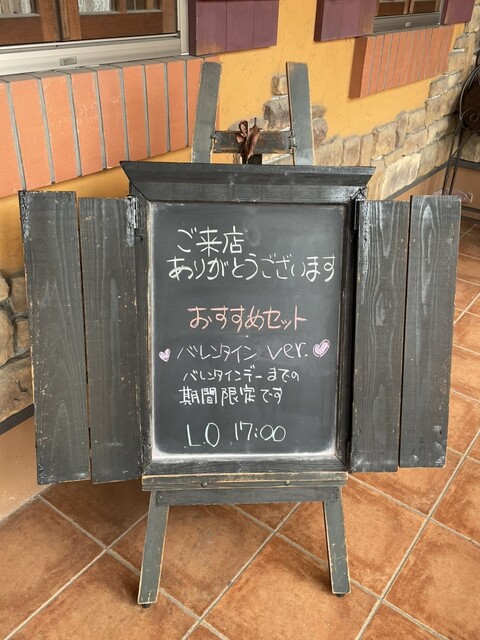 ご来店
ありがとうございます
おすすめセット
バレンタイン ver.
バレンタインデーまでの
期間限定です
LO 17:00